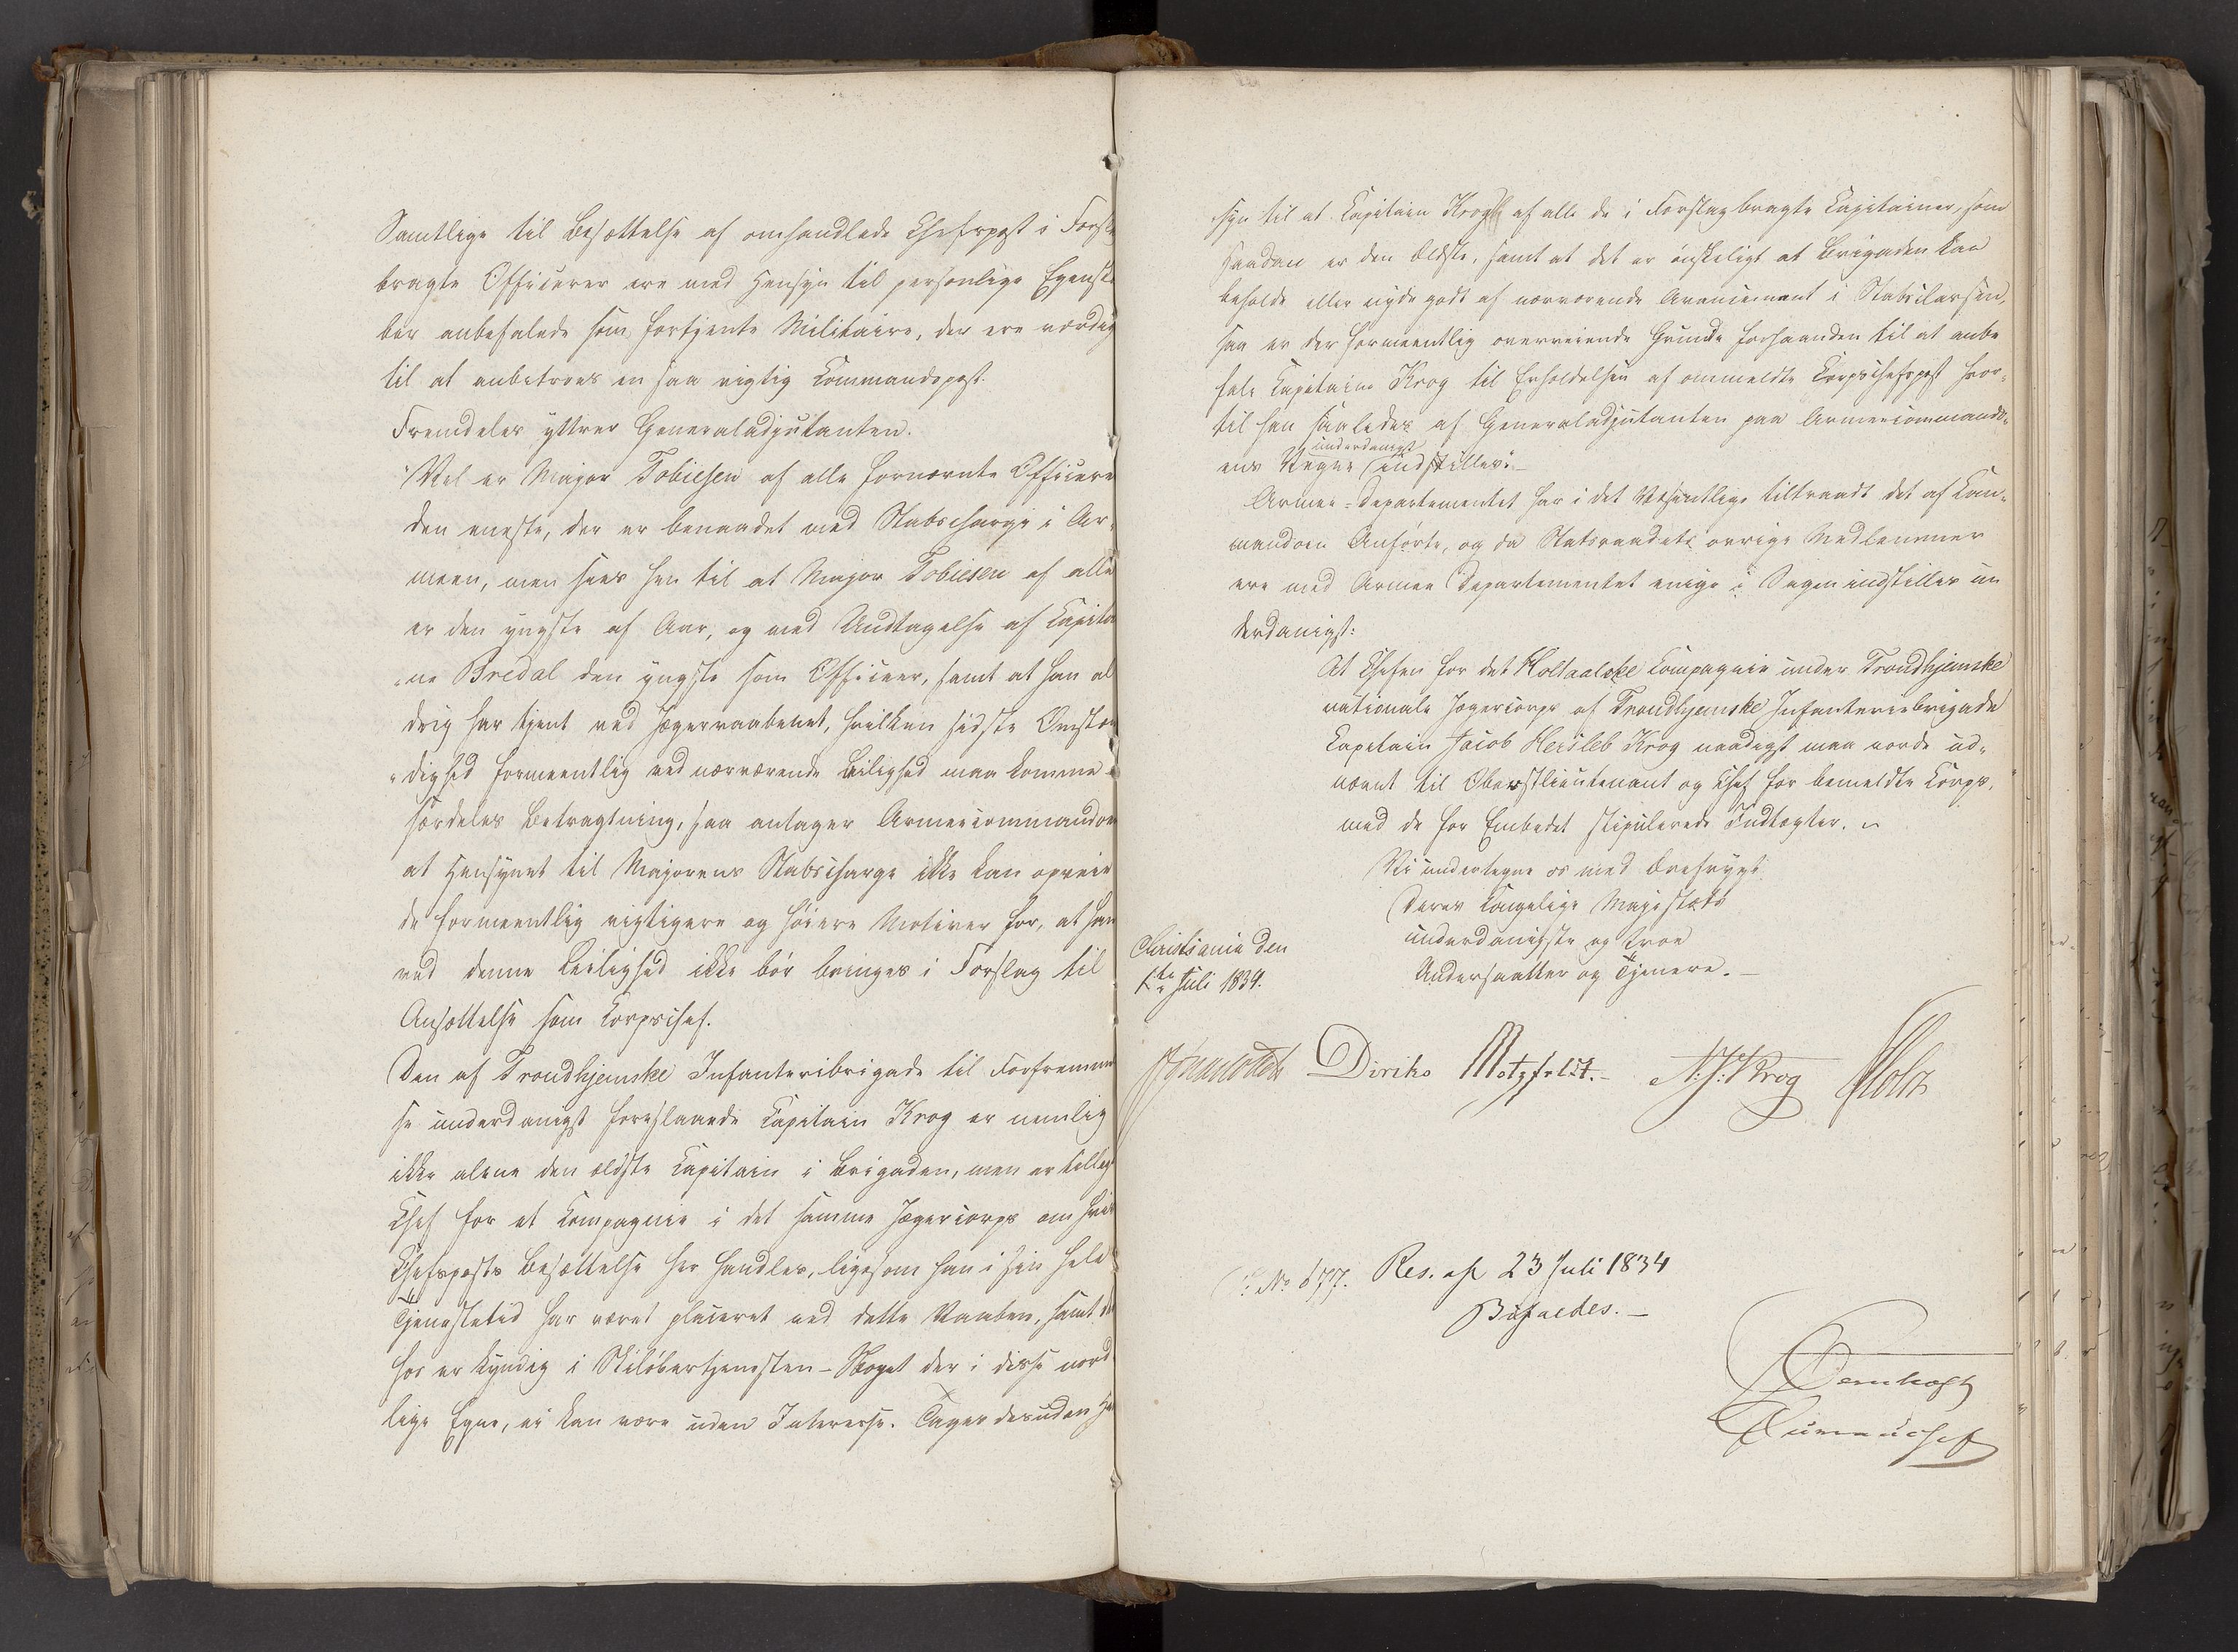 Samtlige til Besættelse af omhandlede Chefspost i Forsla
bragte Officierer ere med Hensyn til personlige Egenska
ber anbefalede som fortjente Militaire, der ere værdig
til at anbetroes en saa vigtig Commandopost.
Fremdeles yttrer Generaladjutanten.
"Vel er Major Tobiesen af alle fornævnte Officiere
den eneste, der er benaadet med Stabscharge i Ar„
meen, men sees hen til at Major Tobiesen af alle
er den yngste af Aar, og med Undtagelse af Capita
„ne Bredal den yngste som Officier, samt at han al
drig har tjent ved Jægervaabenet, hvilken sidste Omstæn
„dighed formeentlig ved nærværende Leilighed maa komme i
særdeles Betragtning, saa antager Armeecommandoen
at Hensynet til Majorens Stabscharge ikke kan opveie
de formeentlig vigtigere og høiere Motiver for, at han
ved denne Leilighed ikke bør bringes i Forslag til
Ansættelse som Corpschef.
Den af Trondhjemske Infanteribrigade til Forfremmel
se underdanigst foreslaaede Capitain Krog er nemlig
ikke alene den ældste Capitain i Brigaden, men er tillige
Chef for et Compagnie i det samme Jægercorps om hvis
Chefsposts Besættelse her handles, ligesom han i sin hele
Tjenestetid har været placeret ved dette Vaaben, samt der
hos er kyndig i Skiløbertjenesten – Noget der i disse nord
lige Egne, ei kan være uden Interesse. Tages desuden Hen
syn til at Capitain Krog af alle de i Forslag bragte Capitainer, som
saadan er den ældste, samt at det er ønskeligt at Brigaden kan
beholde eller nyde godt af nærværende Avancement i Stabsclassen,
saa er der formeentlig overveiende Grunde forhaanden til at anbe
fale Capitaine Krog til Erholdelsen af ommeldte Corpschefspost hvor„
til han saaledes af Generaladjutanten paa Armeecommando„
ens Vegne underdanigst indstilles."–
Armee-Departementet har i det Væsentlige tiltraadt det af Com„
mandoen Anførte, og da Statsraadets øvrige Medlemmer
ere med Armee Departementet enige i Sagen indstilles un
derdanigst:
At Chefen for det Holtaalske Compagnie under Trondhjemske
nationale Jægercorps af Trondhjemske Infanteriebrigade
Capitain Jacob Hersleb Krog naadigst maa vorde ud„
nævnt til Oberstlieutenant og Chef for bemeldte Corps,
med de for Embedet stipulerede Indtægter.
Vi undertegne os med Ærefrygt
Deres Kongelige Majestæts
underdanigste og troe
Undersaatter og Tjenere.–
Christiania den
1ste Juli 1834.
Diriks Motzfeldt.– N:J:Krog Holst
No 677. Res. af 23 Juli 1834
Bifaldes.–